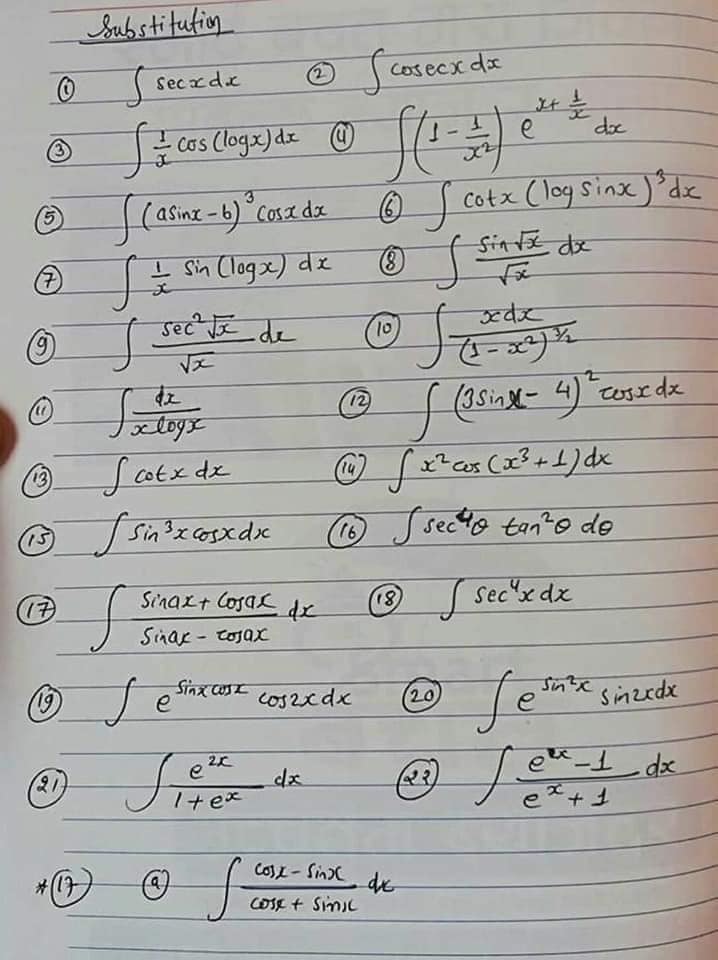 Substitution
① ∫ sec x dx ② ∫ cosec x dx
③ ∫ 1/x cos (log x) dx ④ ∫ (1 - 1/x²) e^(x + 1/x) dx
⑤ ∫ (a sin x - b)³ cos x dx ⑥ ∫ cot x (log sin x)³ dx
⑦ ∫ 1/x sin (log x) dx ⑧ ∫ sin√x / √x dx
⑨ ∫ sec²√x / √x dx ⑩ ∫ x dx / (1 - x²)^(3/2)
⑪ ∫ dx / x log x ⑫ ∫ (3 sin x - 4)² cos x dx
⑬ ∫ cot x dx ⑭ ∫ x² cos (x³ + 1) dx
⑮ ∫ sin³ x cos x dx ⑯ ∫ sec⁴θ tan²θ dθ
⑰ ∫ (sin ax + cos ax) / (sin ax - cos ax) dx ⑱ ∫ sec⁴ x dx
⑲ ∫ e^(sin x cos x) cos 2x dx ⑳ ∫ e^(sin² x) sin 2x dx
㉑ ∫ e^(2x) / (1 + e^x) dx ㉒ ∫ (e^x - 1) / (e^x + 1) dx
* ⑰ ⓐ ∫ (cos x - sin x) / (cos x + sin x) dx